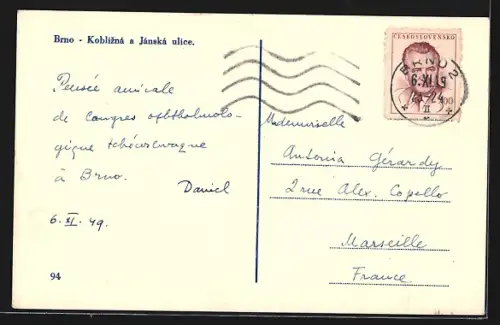 Brno - Kobližná a Jánská ulice.
Pensée amicale
de Congrès ophtalmolo-
gique tchécoslovaque
à Brno.
Daniel
6. XI. 49.
94
ČESKOSLOVENSKO
BRNO 2
6.XI.49
-24
II
Mademoiselle
Antonia Gérardy
2 rue Alex. Copello
Marseille
France